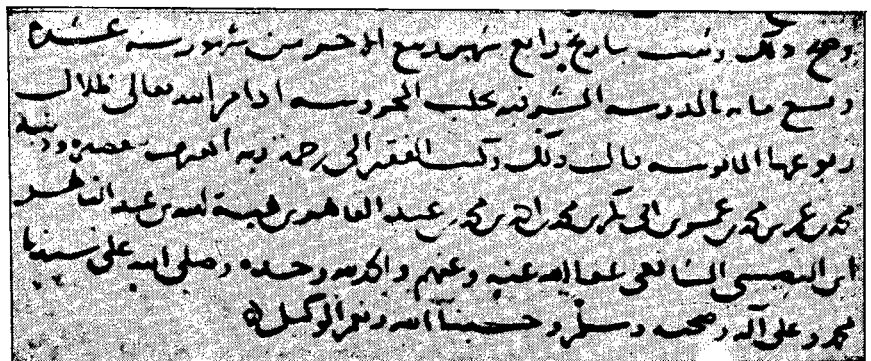 وصح ذلك وثبت بتاريخ رابع شهر ربيع الآخر من شهور سنة عشرة
وتسع مائة بالمدرسة الشرفية بحلب المحروسة ادام الله تعالى ظلال
ربوعها المانوسة قال ذلك وكتب الفقير الى رحمة ربه المعترف بتقصيره وذنبه
محمد بن عمر بن محمد بن عمر بن ابي بكر بن محمد بن احمد بن محمد بن عبد القاهر بن هبة الله بن عبد القاهر
ابن النصيبي الشافعي عفا الله عنه وعنهم والحمد لله وحده وصلى الله على سيدنا
محمد وعلى آله وصحبه وسلم وحسبنا الله ونعم الوكيل